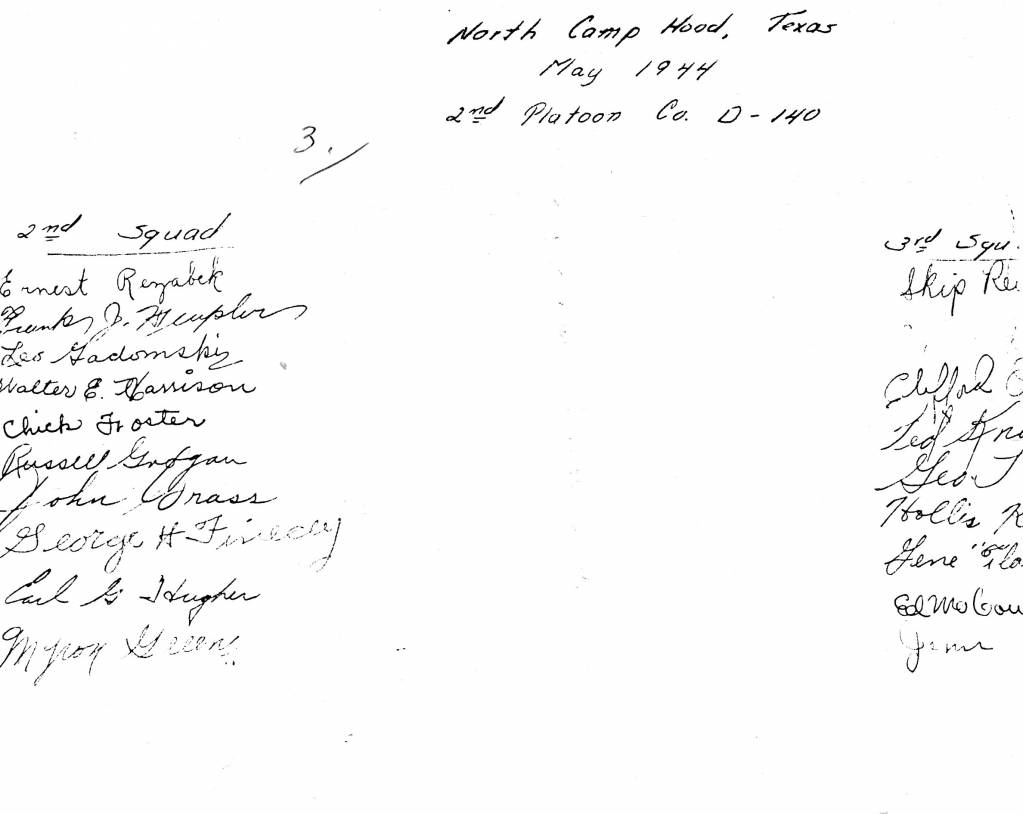 North Camp Hood, Texas
May 1944
2nd Platoon Co. D-140
3.
2nd Squad
Ernest Rezabek
Frank J.
Leo Gadomski
Walter E. Harrison
Chick Froster
Russell Grogan
John Grass
George H
Earl G Hugher
Myron Greene
3rd Squ
Skip Rei
Clifford
Ted Kni
Geo. T
Hollis K
Gene
Ed McCou